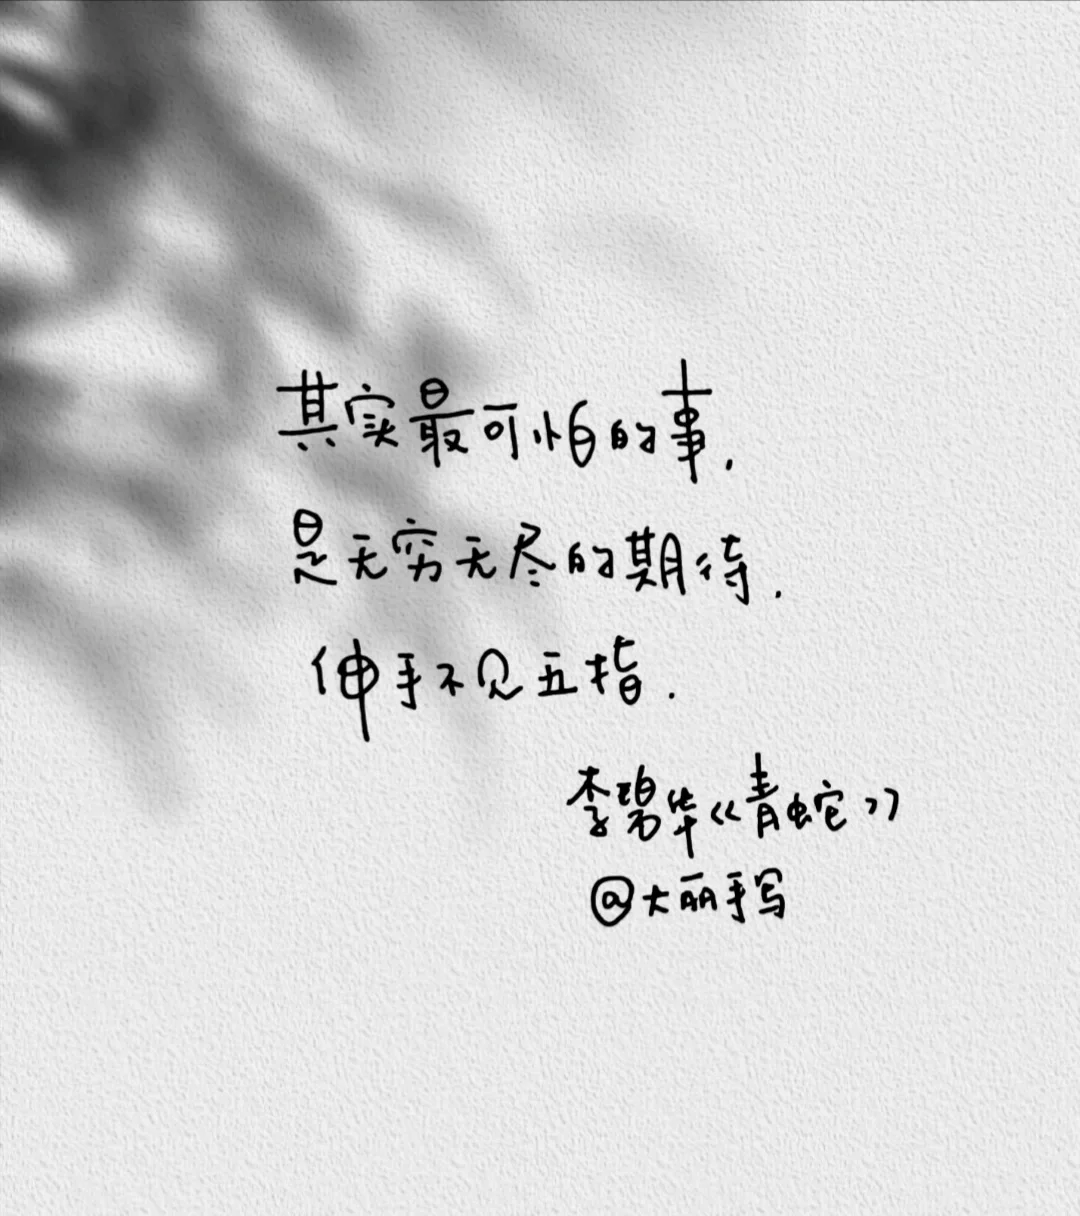 其实最可怕的事.
是无穷无尽的期待.
伸手不见五指.
李碧华《青蛇》
@大丽手写